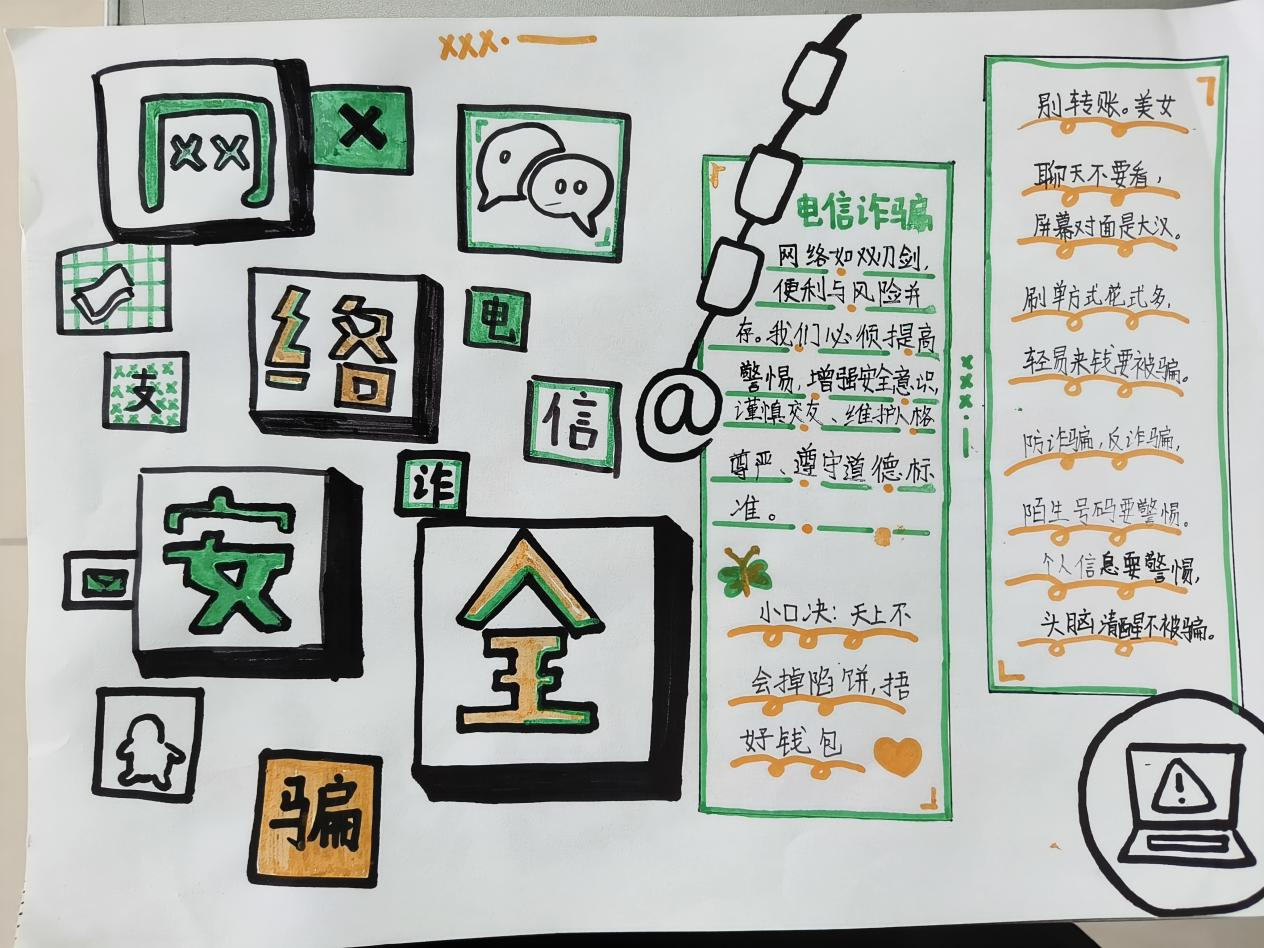 xxx.
网
x
络
电
支
信
诈
安
全
骗
@
电信诈骗
网络如双刃剑，
便利与风险并
存。我们必须提高
警惕，增强安全意识，
谨慎交友、维护人格
尊严、遵守道德标
准。
小口决：天上不
会掉陷饼，捂
好钱包
xxx.
别转账。美女
聊天不要看，
屏幕对面是大汉。
刷单方式花式多，
轻易来钱要被骗。
防诈骗，反诈骗，
陌生号码要警惕。
个人信息要警惕，
头脑清醒不被骗。
!